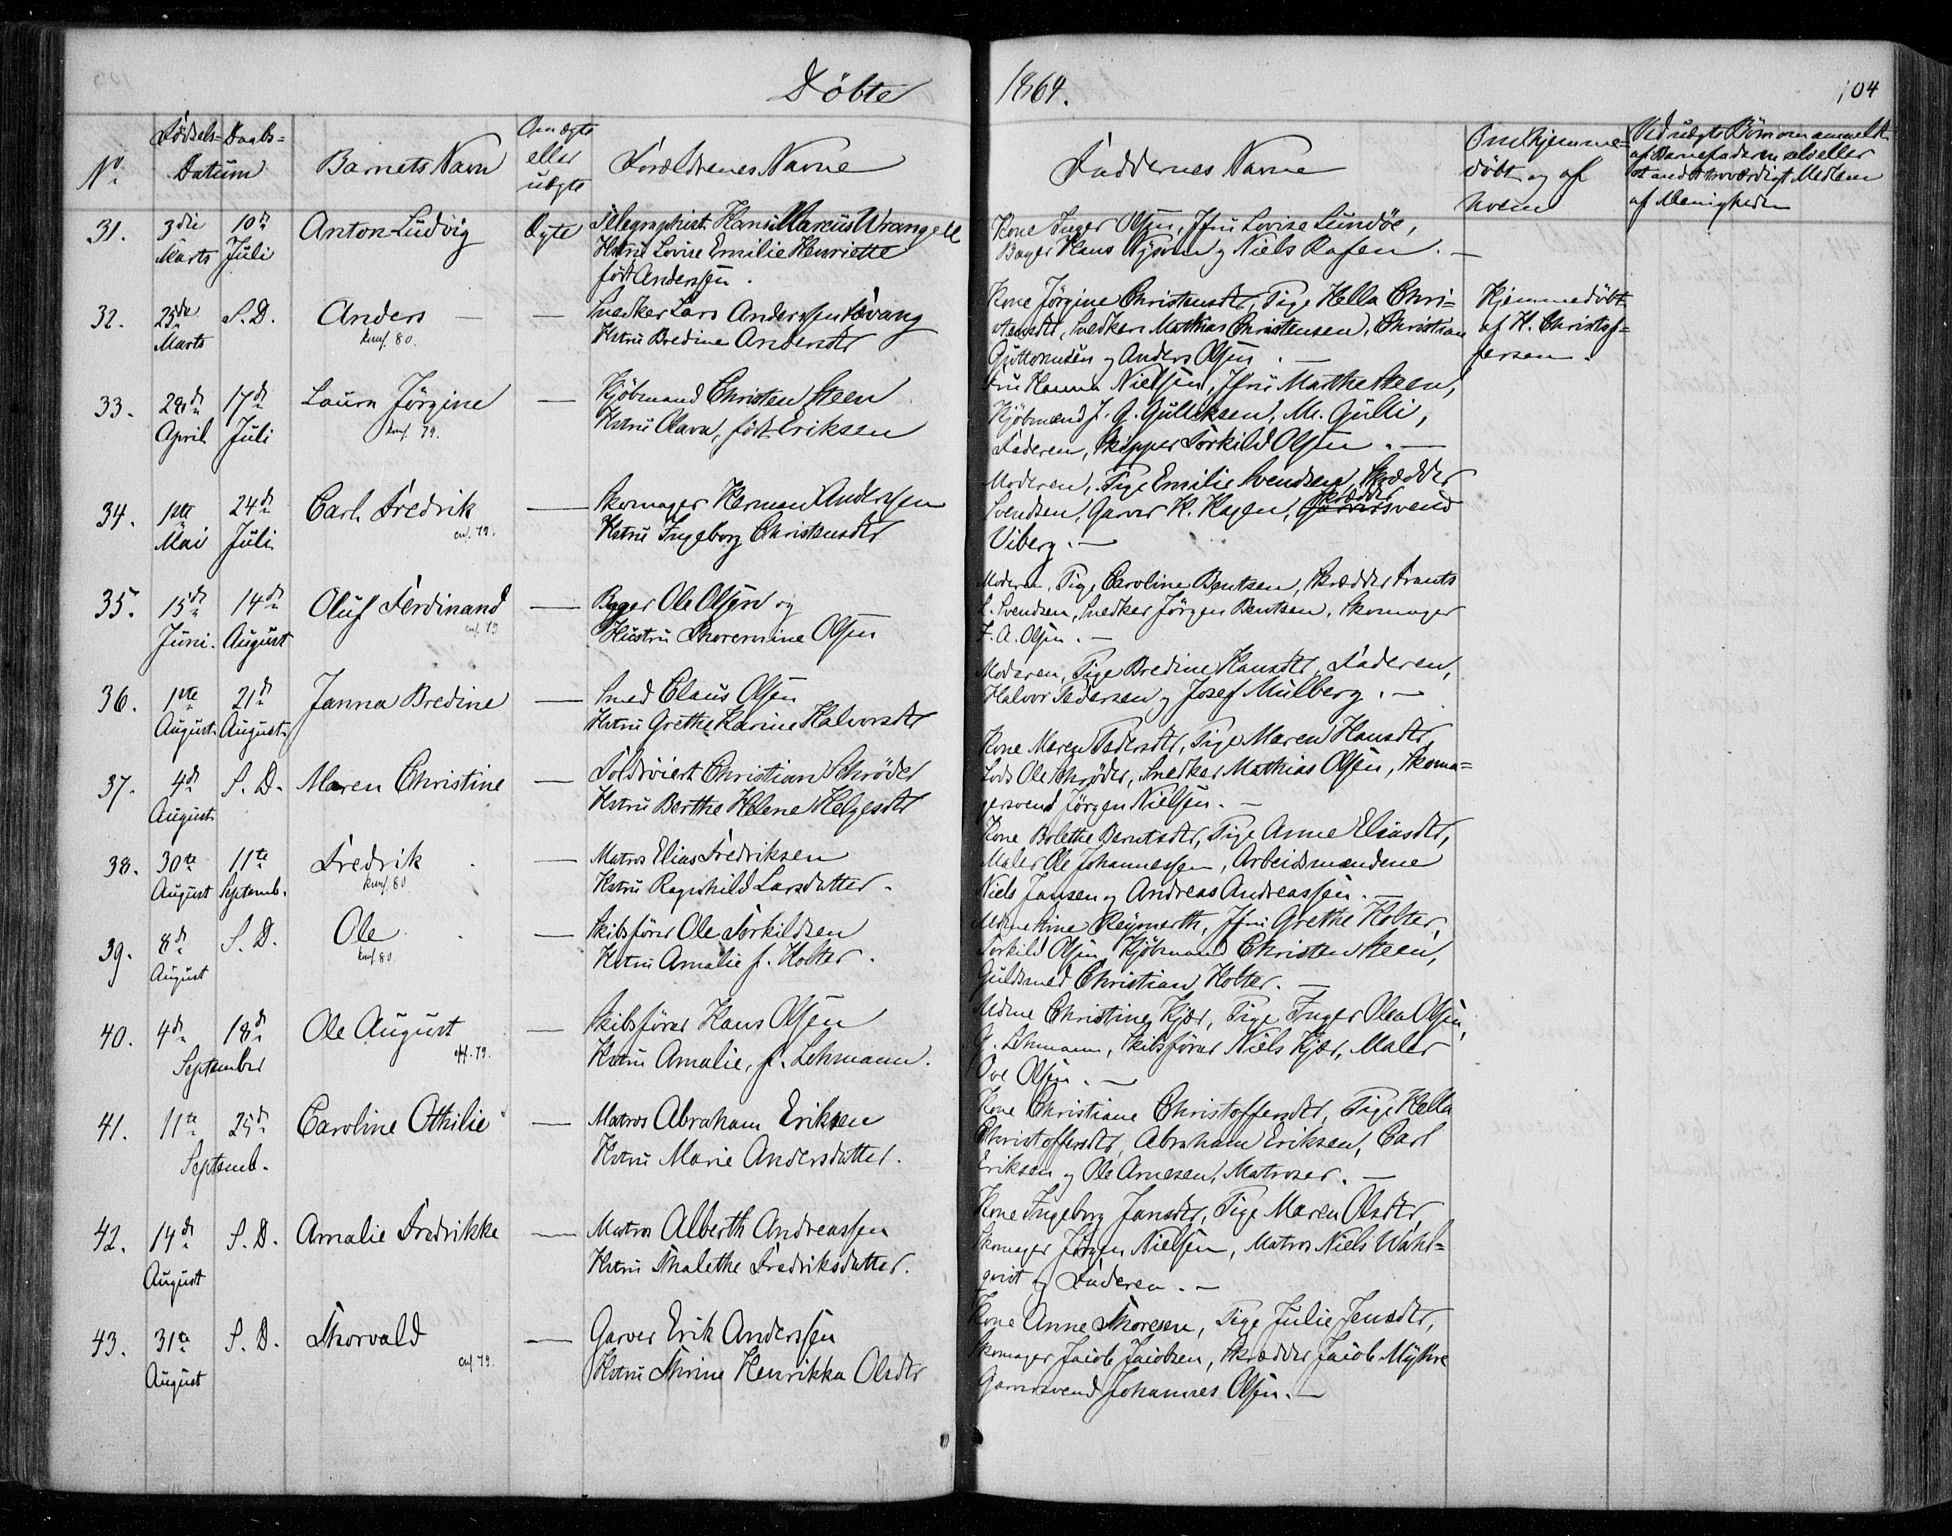 Döbte
1864.
104
No.
Födsels-
Daabs-
Datum
Barnets Navn
Om ægte
eller
uægte
Forældrenes Navne
Faddernes Navne
Om hjemme-
döbt og af
hvem
Ved uægte Börn om anmeldt
af Barnefaderen selv eller
et andet troværdigt Medlem
af Menigheden
31.
3die
Marts
10de
Juli
Anton Ludvig
Ægte
Telegraphist Hans Marcus Wrangell
Hstru Lovise Emilie Henriette
född Anderssen.
Kone Inger Olsen, Jfru Lovise Lundöe,
Bager Hans og Niels Rafen. —
32.
25de
Marts
S. D.
Anders —
Kunf. 80.
—
Snedker Lars Anderssen Lövang
Hstru Bredine Andersdt
Kone Jörgine Christensdt, Pige Hella Chri-
stensdt, Snedker Mathias Christensen, Christian
Guttormsen og Anders Olsen. —
Hjemmedöbt
af H. Christof-
fersen.
33.
28de
April
17de
Juli
Laura Jörgine
Kunf. 79.
—
Kjöbmand Christen Steen
Hstru Olava, född Eriksen
Fru Hanna Nielsen, Jfru Marthe Steen,
Kjöbmænd J. G. Gulliksen, M. Gulli,
Faderen, Skipper Torkild Olsen. —
34.
1ste
Mai
24de
Juli
Carl Fredrik
cuf. 79.
—
Skomager Herman Anderssen
Hstru Ingeborg Christensdt
Moderen, Pige Emilie Svendsen, Skrædder
Svendsen, Garver H. Hagen, Skrædder
svend
Viberg. —
35.
15de
Juni.
14de
August
Oluf Ferdinand
cuf. 79
—
Bager Ole Olsen og
Hustru Thoremine Olsen
Moderen, Pige Caroline Bentsen, Skrædder Frants
L. Svendsen, Snedker Jörgen Bentsen, Skomager
F. A. Olsen. —
36.
1ste
August
21de
August
Janna Bredine
—
Smed Claus Olsen
Hstru Grethe Karine Halvorsdt
Moderen, Pige Bredine Hansdt, Faderen,
Halvor Pedersen og Josef Mülberg. —
37.
4de
August
S. D.
Maren Christine
—
Toldviert Christian Schröder
Hstru Berthe Helene Helgesdt
Kone Maren Pedersdt, Pige Maren Hansdt,
Lods Ole Schröder, Snedker Mathias Olsen, Skoma-
gersvend Jörgen Nielsen. —
38.
30te
August
11te
Septemb.
Fredrik
Kunf. 80.
—
Matros Elias Fredriksen
Hstru Ragnhild Larsdatter.
Kone Bolethe Berntsdt, Pige Anne Eliasdt,
Maler Ole Johannessen, Arbeidsmændene
Niels Jansen og Andreas Andreassen. —
39.
8de
August
S. D.
Ole
Kunf. 80.
—
Skibsförer Ole Torkildsen
Hstru Amalie f. Holter.
Mdme Stine Reymerth, Jfru Grethe Holter,
Torkild Olsen, Kjöbmand Christen Steen,
Guldsmed Christian Holter. —
40.
4de
18de
September
Ole August
79.
—
Skibsförer Hans Olsen
Hstru Amalie, f. Lehmann.
Mdme Christine Kjær, Pige Inger Olea Olsen,
Lehmann, Skibsförer Niels Kjær, Maler
Ove Olsen. —
41.
11te
25de
Septemb.
Caroline Othilie
—
Matros Abraham Eriksen
Hstru Marie Andersdatter.
Kone Christiane Christoffersdt, Pige Hella
Christoffersdt, Abraham Eriksen, Carl
Eriksen og Ole Arnesen, Matroser. —
42.
14de
August
S. D.
Amalie Fredrikke
—
Matros Alberth Andreassen
Hstru Thalethe Fredriksdatter.
Kone Ingeborg Jansdt, Pige Maren Olsdt,
Skomager Jörgen Nielsen, Matros Niels Wahl-
qvist og Faderen. —
43.
31te
August
S. D.
Thorvald
cuf. 79.
—
Garver Erik Anderssen
Hstru Thrine Henrikka Olsdtr
Kone Anne Thoresen, Pige Julie Jensdt,
Skomager Jacob Jacobsen, Skrædder Jacob Myhre
Garversvend Johannes Olsen. —